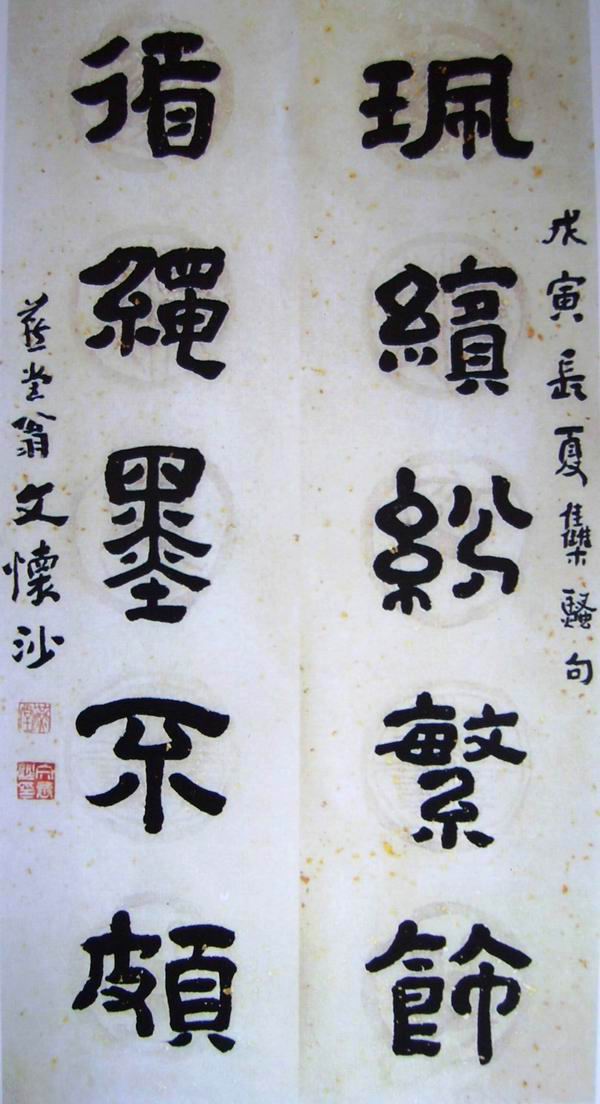 戊寅長夏雧騷句
珮繽紛繁飾
循繩墨不頗
燕堂翁文懷沙